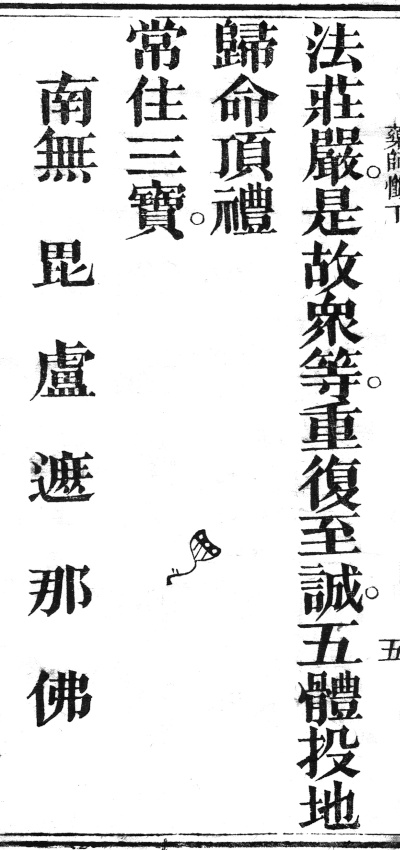 藥師懺下
五
法莊嚴。是故衆等。重復至誠。五體投地
歸命頂禮
常住三寶。
南無毘盧遮那佛